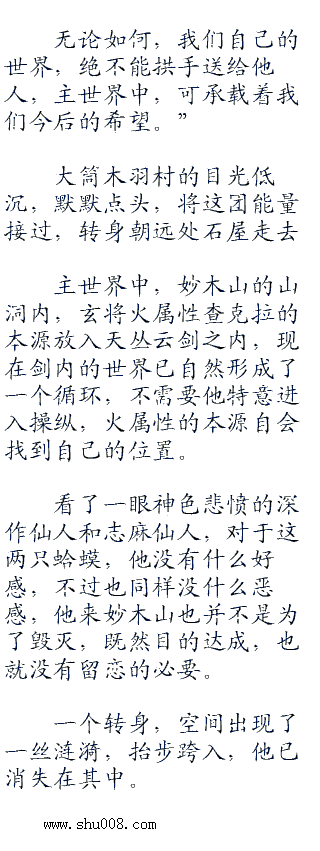 无论如何，我们自己的
世界，绝不能拱手送给他
人，主世界中，可承载着我
们今后的希望。”
大筒木羽村的目光低
沉，默默点头，将这团能量
接过，转身朝远处石屋走去
主世界中，妙木山的山
洞内，玄将火属性查克拉的
本源放入天丛云剑之内，现
在剑内的世界已自然形成了
一个循环，不需要他特意进
入操纵，火属性的本源自会
找到自己的位置。
看了一眼神色悲愤的深
作仙人和志麻仙人，对于这
两只蛤蟆，他没有什么好
感，不过也同样没什么恶
感，他来妙木山也并不是为
了毁灭，既然目的达成，也
就没有留恋的必要。
一个转身，空间出现了
一丝涟漪，抬步跨入，他已
消失在其中。
www.shu008.com